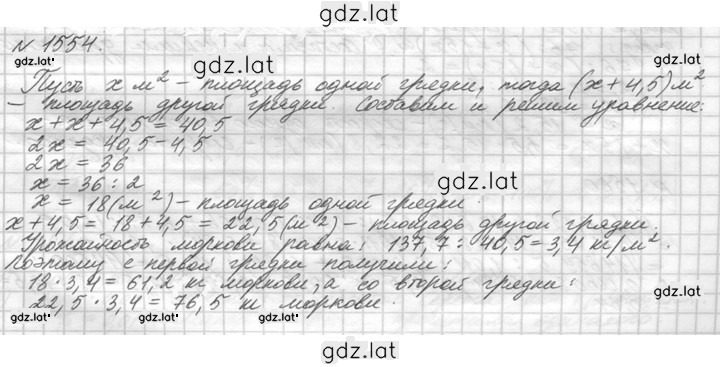 gdz.lat
№ 1554.
gdz.lat
gdz.lat
Пусть x м² – площадь одной грядки, тогда (x + 4,5) м²
– площадь другой грядки. Составим и решим уравнение:
x + x + 4,5 = 40,5
2x = 40,5 – 4,5
2x = 36
x = 36 : 2
gdz.lat
gdz.lat
x = 18 (м²) – площадь одной грядки.
x + 4,5 = 18 + 4,5 = 22,5 (м²) – площадь другой грядки.
Урожайность моркови равна: 137,7 : 40,5 = 3,4 кг/м².
Поэтому с первой грядки получили:
18 · 3,4 = 61,2 кг моркови, а со второй грядки:
22,5 · 3,4 = 76,5 кг моркови.
gdz.lat
gdz.lat
gdz.lat
gdz.lat